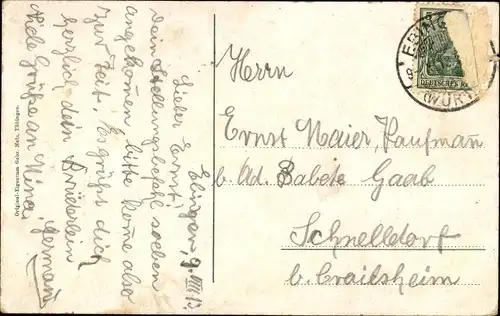 Ebingen, 9. VIII 13.
Lieber Ernst!
Dein Stellungsbefehl soeben
angekommen bitte kome also
zur Zeit. Es grüßt dich
herzlich dein Brüderlein
Hermann
Viele Grüße an Mina,
Original-Eigentum Gebr. Metz, Tübingen.
Herrn
Ernst Maier, Kaufmann
b. Ad. Babete Gaab
Schnelldorf
b. Crailsheim
EBING
(WÜR
DEUTSCHES